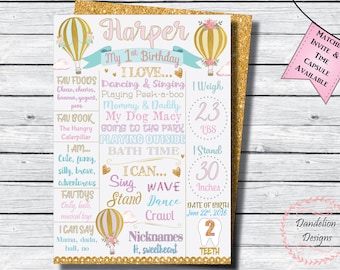 Harper
My 1st Birthday
I LOVE...
Dancing & Singing
Playing Peek-a-boo
Mommy & Daddy
My Dog Macy
GOING TO THE PARK
PLAYING OUTSIDE
BATH TIME
I CAN...
Sing
WAVE
Stand
Dance
Crawl
Nicknames
H, sweetheart
FAV FOODS
Cheese, cheerios,
bananas, yogurt,
peas
FAV BOOK
The Hungry
Caterpillar
I AM...
Cute, funny,
silly, brave,
adventurous
FAV TOYS
I CAN SAY
Mama, dada,
bub, no
I Weigh
23
LBS
I Stand
30
Inches
DATE OF BIRTH
June 22nd, 2016
2
TEETH
MATCHING
INVITE &
TIME
CAPSULE
AVAILABLE
Dandelion
Designs